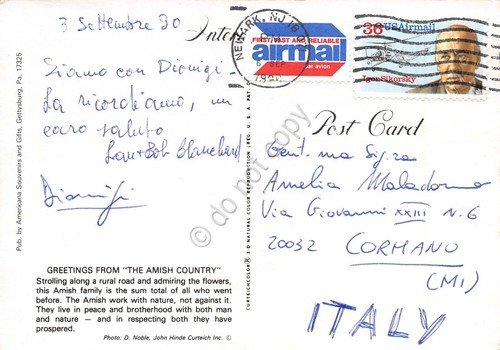 3 Settembre 90
Siamo con Dionigi -
La ricordiamo, un
caro saluto
Lou + Bob Blanchard
Dionigi
Pub. by Americana Souvenirs and Gifts, Gettysburg, Pa. 17325
GREETINGS FROM "THE AMISH COUNTRY"
Strolling along a rural road and admiring the flowers,
this Amish family is the sum total of all who went
before. The Amish work with nature, not against it.
They live in peace and brotherhood with both man
and nature — and in respecting both they have
prospered.
Photo: D. Noble, John Hinde Curteich Inc. ©
CURTEICHCOLOR® 3-D NATURAL COLOR REPRODUCTION (REG. U.S. PAT.
do not copy
FIRST, FAST AND RELIABLE
airmail
par avion
NEWARK, NJ
6 SEP
1990
36 USAirmail
Igor Sikorsky
Post Card
Gent.ma Sig.ra
Amelia Maladorno
Via Giovanni XXIII N. 6
20032 CORMANO
(MI)
ITALY